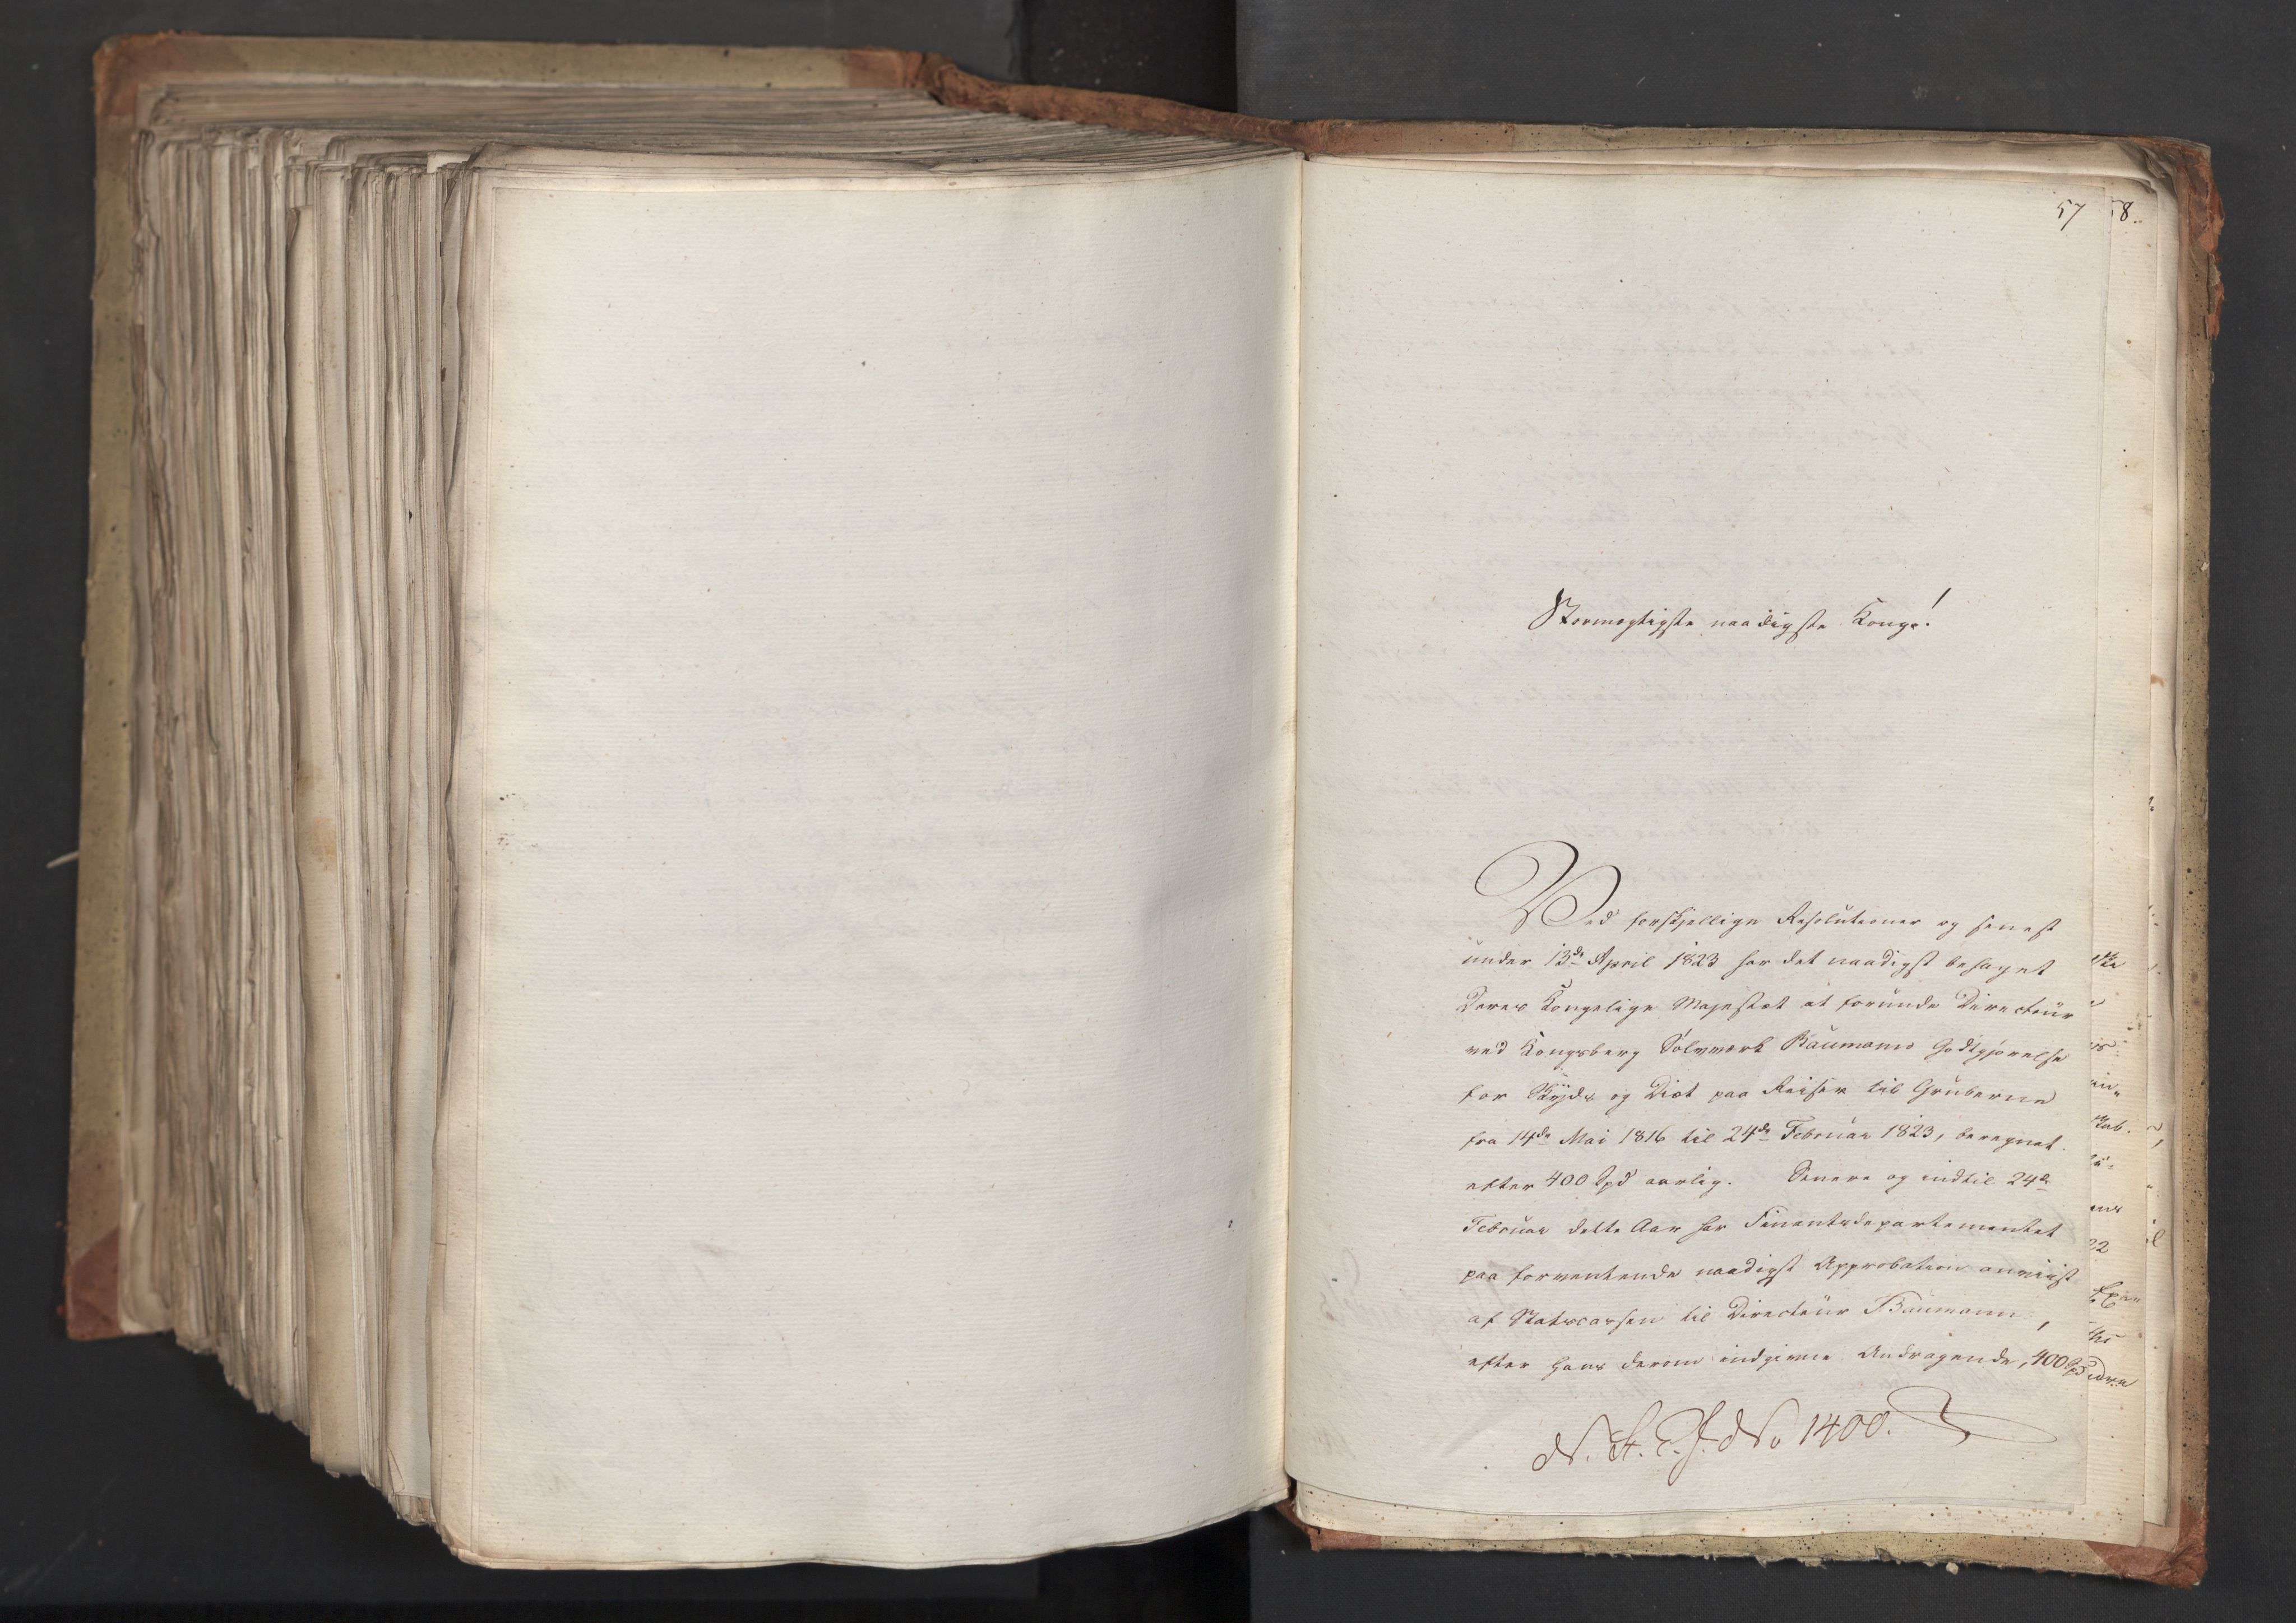 57
58.
Stormægtigste naadigste Konge!
Ved forskjellige Resolutioner og senest
under 13de April 1823 har det naadigst behaget
Deres Kongelige Majestæt at forunde Directeur
ved Kongsberg Sølvværk Baumann Godtgjørelse
for Skyds og Diæt paa Reiser til Gruberne
fra 14de Mai 1816 til 24de Februar 1823, beregnet
efter 400 Spd aarlig. Senere og indtil 24de
Februar dette Aar har Finantsdepartementet
paa forventende naadigst Approbation anviist
af Statscassen til Directeur Baumann,
efter hans derom indgivne Andragende, 400 Spd
N. St. E. J. No 1400.